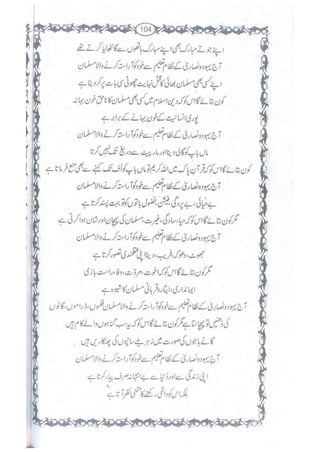 104
اپنے جوتے مبارک بھی اپنے مبارک ہاتھوں سے گانٹھ لیا کرتے تھے
آج یہود و نصاریٰ کے نظامِ تعلیم سے خود کو آراستہ کرنے والا مسلمان
اپنے کسی بھی مسلمان بھائی کا قتل نہایت چھوٹی سی بات پر کر دیتا ہے
کون بتائے گا اس کو کہ دین اسلام میں کسی بھی مسلمان کا ناحق خون بہانہ
پوری انسانیت کے خون بہانے کے برابر ہے
آج یہود و نصاریٰ کے نظامِ تعلیم سے خود کو آراستہ کرنے والا مسلمان
ماں باپ کو گالی دینا اور مار پیٹ سے دریغ تک نہیں کرتا
کون بتائے گا اس کو کہ قرآن پاک میں اللہ کریم تو ماں باپ کو اُف تک کہنے سے بھی منع فرماتا ہے
آج یہود و نصاریٰ کے نظامِ تعلیم سے خود کو آراستہ کرنے والا مسلمان
بے حیائی، بے پردگی، فیشن، فضول باتوں کو بہت پسند کرتا ہے
مگر کون بتائے گا اس کو کہ حیا، سادگی، غیرت، مسلمان کی پہچان اور شان ہوا کرتی ہے
آج یہود و نصاریٰ کے نظامِ تعلیم سے خود کو آراستہ کرنے والا مسلمان
جھوٹ، دھوکہ، فریب، دینا اپنی عقلمندی تصور کرتا ہے
مگر کون بتائے گا اس کو کہ اخوت، مروّت، وفا، راست بازی
ایمانداری، ایثار، قربانی مسلمان کا شیوہ ہے
آج یہود و نصاریٰ کے نظامِ تعلیم سے خود کو آراستہ کرنے والا مسلمان فلموں، ڈراموں، گانوں
کی دُھنیں تو پہچانتا ہے مگر کون بتائے گا اس کو کہ یہ سب گناہوں والے کام ہیں
گانے باجوں کی صورت میں زہریلے سانپوں کی پھنکاریں ہیں
آج یہود و نصاریٰ کے نظامِ تعلیم سے خود کو آراستہ کرنے والا مسلمان
اپنی زندگی سے اور دُنیا سے بے انتہا نہ صرف پیار کرتا ہے
بلکہ اس کو دائمی رکھنے کا متمنی نظر آتا ہے